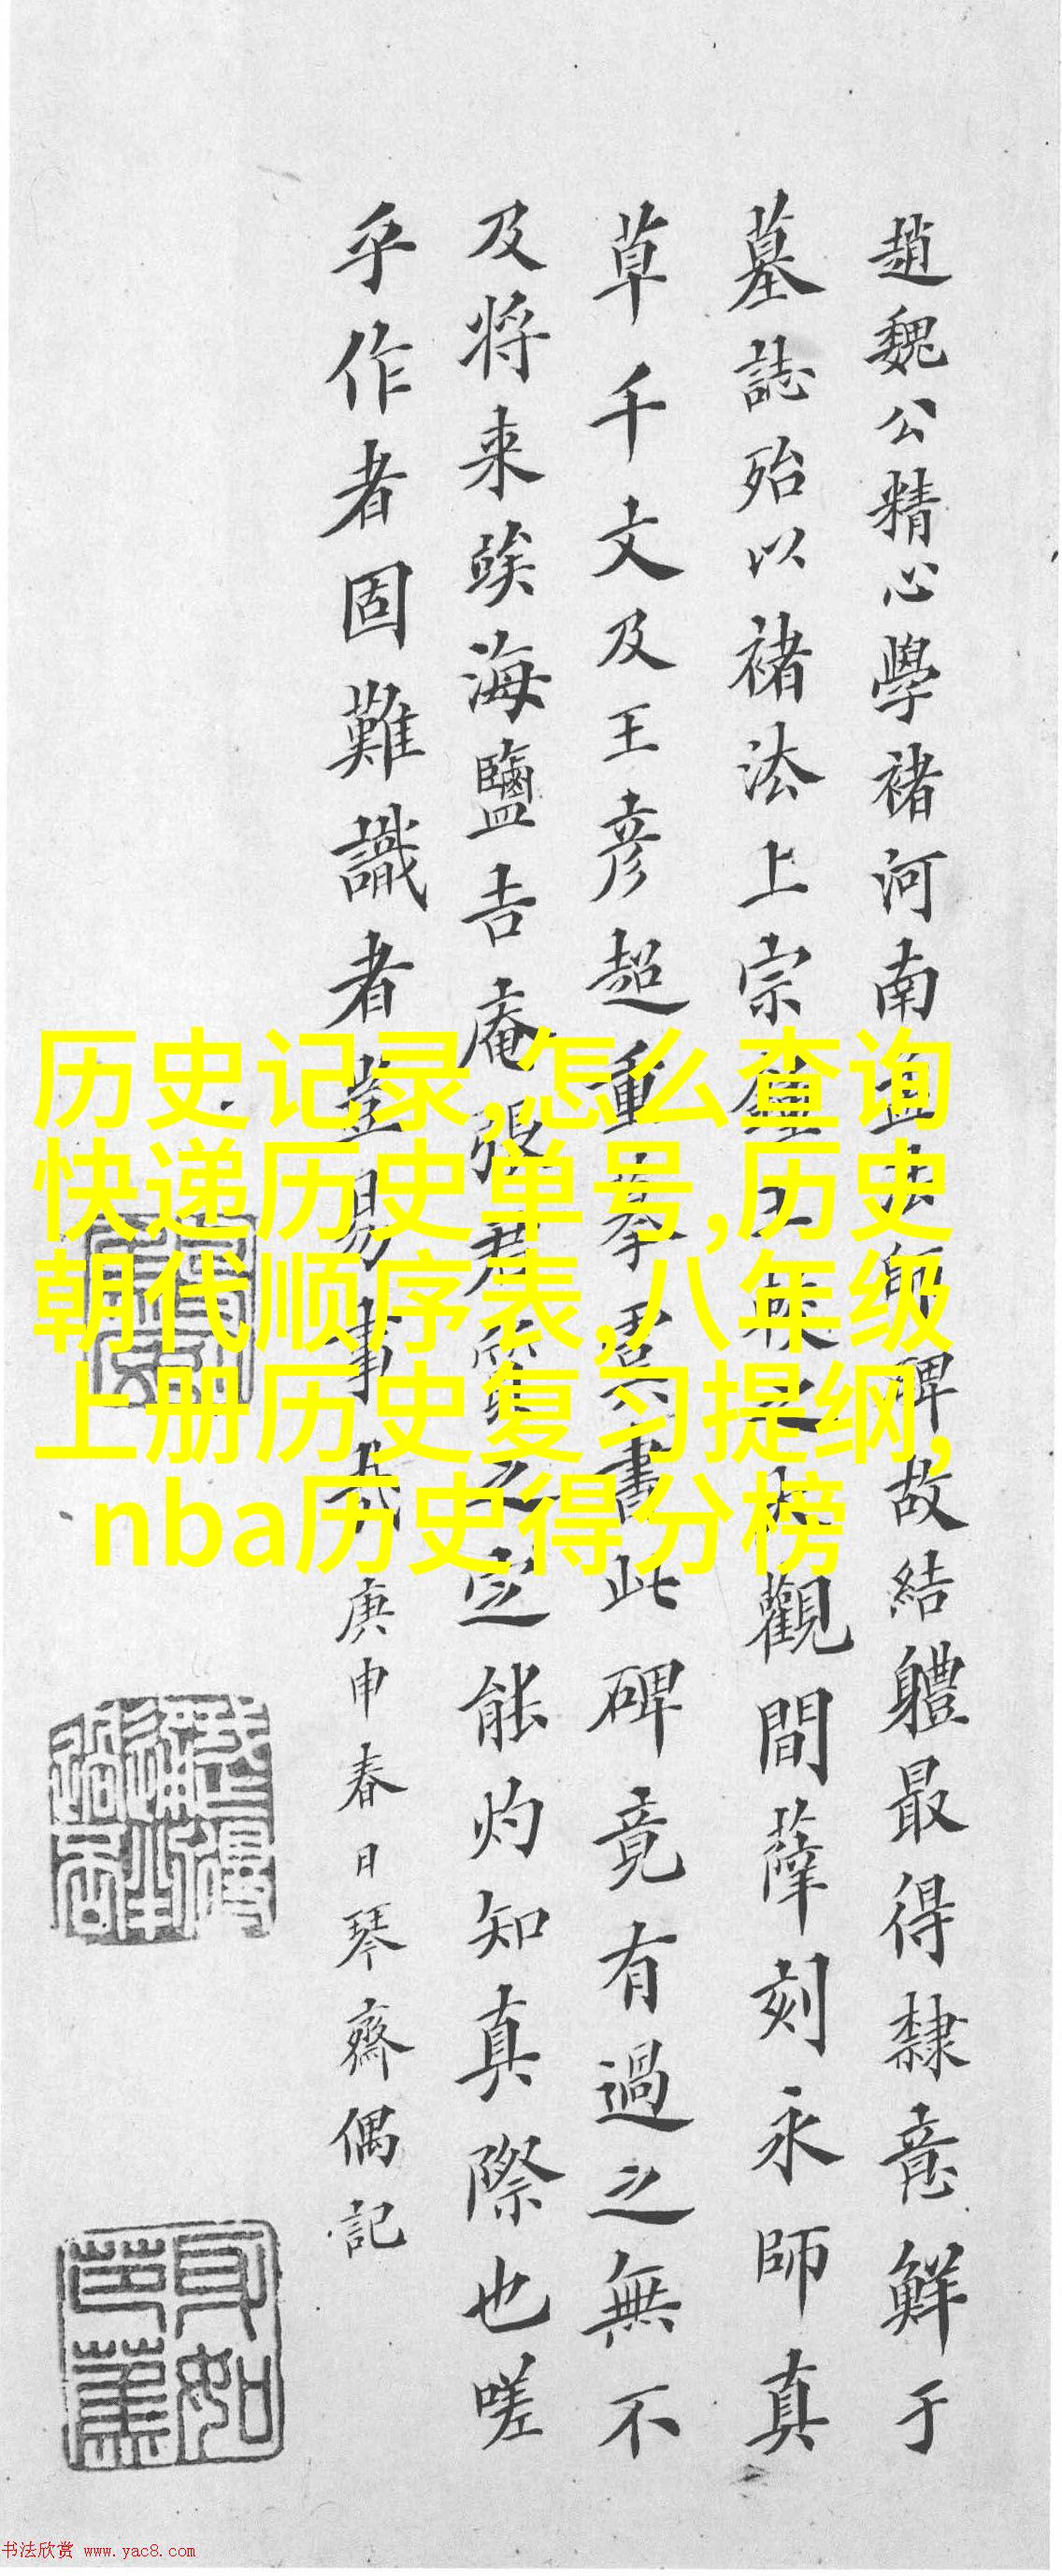 趙魏公精心學褚河南孟法師碑故結軆最得隸意鮮于
墓誌殆以褚法上宗鍾王映之大觀間薛刻永師真
草千文及王彦超重摹虞書此碑竟有過之無不
及将来竢海鹽吉庵張君鑒之定能灼知真際也嗟
乎作者固難識者豈易事哉
庚申春日琴齋偶記
历史记录,怎么查询
快递历史单号,历史
朝代顺序表,八年级
上册历史复习提纲,
nba历史得分榜
书法欣赏 www.yac8.com